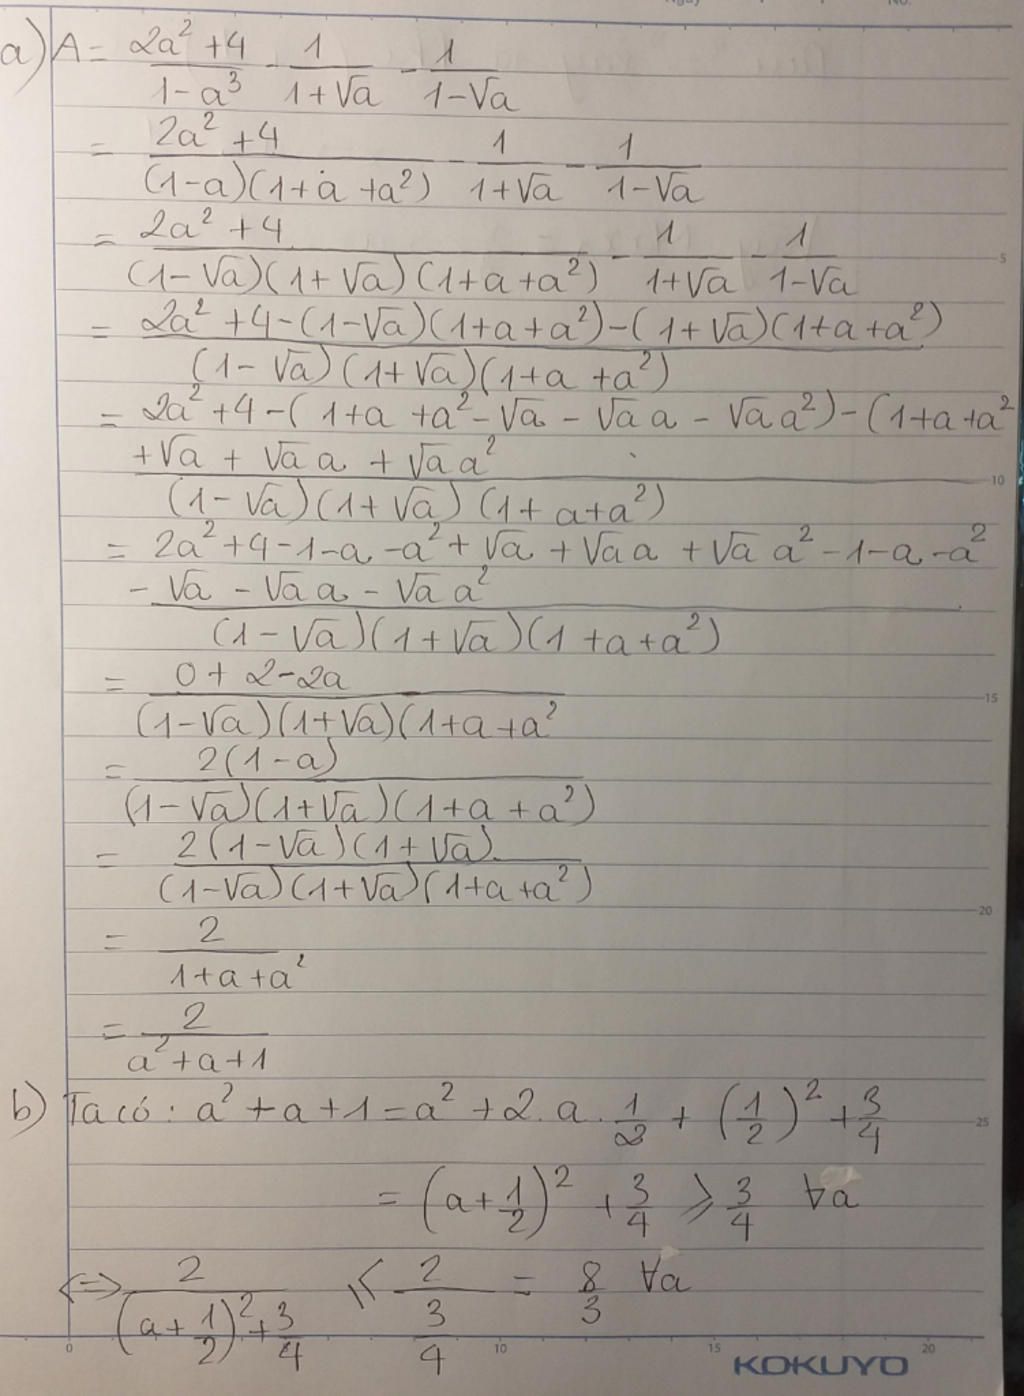 a) A = \frac{2a² + 4}{1 - a³} - \frac{1}{1 + √a} - \frac{1}{1 - √a}
= \frac{2a² + 4}{(1 - a)(1 + a + a²)} - \frac{1}{1 + √a} - \frac{1}{1 - √a}
= \frac{2a² + 4}{(1 - √a)(1 + √a)(1 + a + a²)} - \frac{1}{1 + √a} - \frac{1}{1 - √a}
= \frac{2a² + 4 - (1 - √a)(1 + a + a²) - (1 + √a)(1 + a + a²)}{(1 - √a)(1 + √a)(1 + a + a²)}
= 2a² + 4 - (1 + a + a² - √a - √a a - √a a²) - (1 + a + a²
+ √a + √a a + √a a²
(1 - √a)(1 + √a)(1 + a + a²)
= 2a² + 4 - 1 - a - a² + √a + √a a + √a a² - 1 - a - a²
- √a - √a a - √a a²
(1 - √a)(1 + √a)(1 + a + a²)
= \frac{0 + 2 - 2a}{(1 - √a)(1 + √a)(1 + a + a²}
= \frac{2(1 - a)}{(1 - √a)(1 + √a)(1 + a + a²)}
= \frac{2(1 - √a)(1 + √a)}{(1 - √a)(1 + √a)(1 + a + a²)}
= \frac{2}{1 + a + a²}
= \frac{2}{a² + a + 1}
b) Ta có: a² + a + 1 = a² + 2. a. \frac{1}{2} + (\frac{1}{2})² + \frac{3}{4}
= (a + \frac{1}{2})² + \frac{3}{4} ⩾ \frac{3}{4} ∀a
<=> \frac{2}{(a + \frac{1}{2})² + \frac{3}{4}} ⩽ \frac{2}{\frac{3}{4}} = \frac{8}{3} ∀a
5
10
15
20
25
0 10 15 20
KOKUYO